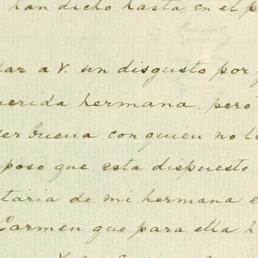 han dicho hasta en el p
dar a V. un disgusto por
querida hermana, pero
ser buena con quien no l
sposo que esta dispuesto
taria de mi hermana e
Carmen que para ella h